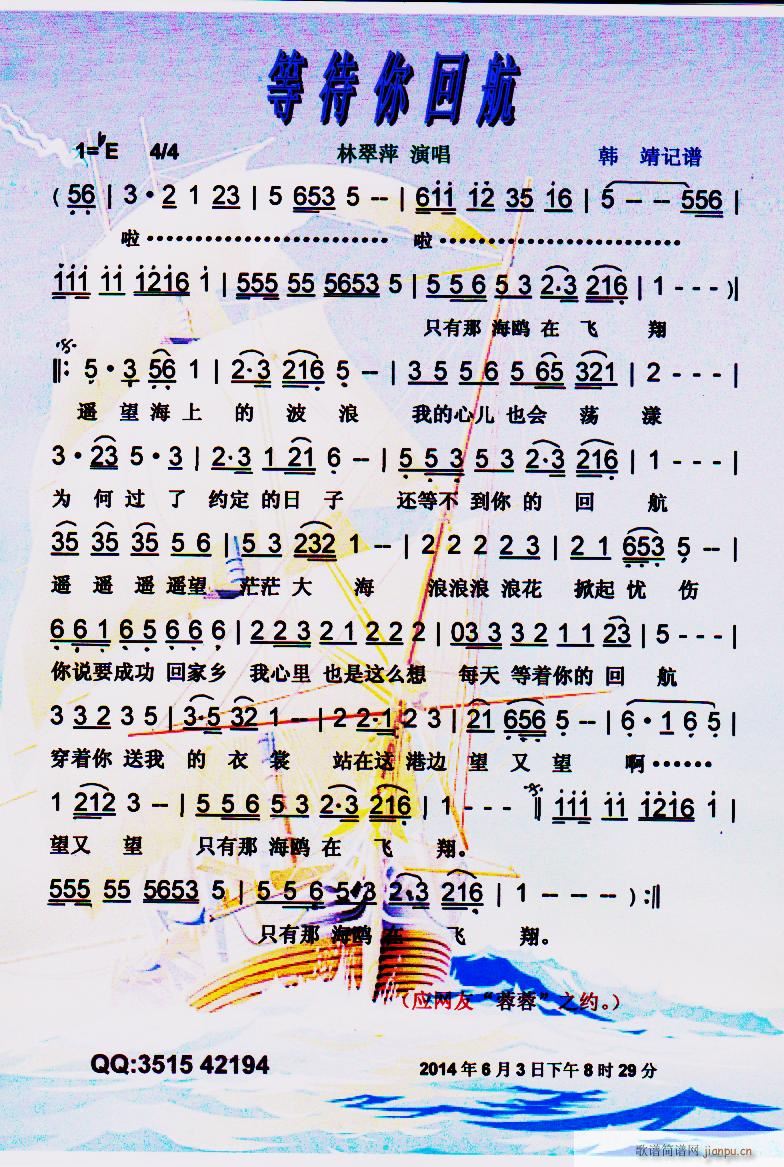 等待你回航
1=♭E 4/4 林翠萍 演唱 韩 靖记谱
( 56 | 3 · 2 1 23 | 5 653 5 -- | 611 12 35 16 | 5 - - 556 |
啦························ 啦························
111 11 1216 1 | 555 55 5653 5 | 5 5 6 5 3 2·3 216 | 1 - - - )||
只有那 海鸥 在 飞 翔
||: 5 · 3 56 1 | 2·3 216 5 -- | 3 5 5 6 5 65 321 | 2 - - - |
遥 望 海 上 的 波 浪 我的心儿 也会 荡 漾
3 · 23 5 · 3 | 2·3 1 21 6 -- | 5 5 3 5 3 2·3 216 | 1 - - - |
为 何 过 了 约定 的日 子 还等不 到你 的 回 航
35 35 35 5 6 | 5 3 232 1 -- | 2 2 2 2 3 | 2 1 653 5 -- |
遥 遥 遥 遥望 茫茫 大 海 浪浪浪 浪花 掀起 忧 伤
6 6 1 6 5 6 6 6 | 2 2 3 2 1 2 2 2 | 03 3 3 2 1 1 23 | 5 - - - |
你说要成功 回家乡 我心里 也是这么想 每天 等着你的 回 航
3 3 2 3 5 | 3·5 32 1 -- | 2 2·1 2 3 | 21 656 5 -- | 6 · 1 6 5 |
穿着你 送我 的 衣 裳 站在这 港边 望 又 望 啊······
1 212 3 -- | 5 5 6 5 3 2·3 216 | 1 - - - || 111 11 1216 1 |
望又 望 只有那 海鸥 在 飞 翔。
555 55 5653 5 | 5 5 6 5·3 2·3 216 | 1 - - - ) :||
只有那 海鸥 在 飞 翔。
(应网友“蓉蓉”之约。)
QQ:3515 42194 2014 年 6 月 3 日下午 8 时 29 分
歌谱简谱网 jianpu.cn